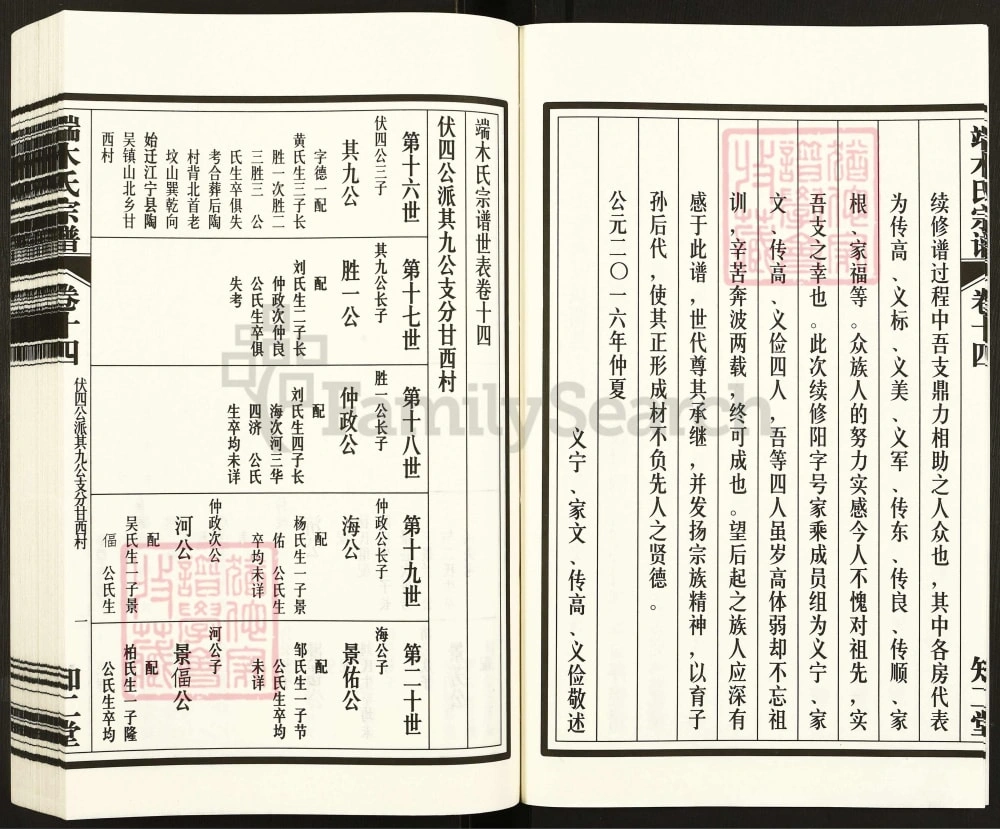 续修谱过程中吾支鼎力相助之人众也，其中各房代表
为传高、义标、义美、义军、传东、传良、传顺、家
根、家福等。众族人的努力实感今人不愧对祖先，实
吾支之幸也。此次续修阳字号家乘成员组为义宁、家
文、传高、义俭四人，吾等四人虽岁高体弱却不忘祖
训，辛苦奔波两载，终可成也。望后起之族人应深有
感于此谱，世代尊其承继，并发扬宗族精神，以育子
孙后代，使其正形成材不负先人之贤德。
义宁、家文、传高、义俭敬述
公元二〇一六年仲夏
端木氏宗谱
卷十四
知二堂
端木氏宗谱世表卷十四
伏四公派其九公支分甘西村
第十六世
伏四公三子
其九公
字德一配
黄氏生三子长
胜一次胜二
三胜三 公
氏生卒俱失
考合葬后陶
村背北首老
坟山巽乾向
始迁江宁县陶
吴镇山北乡甘
西村
第十七世
其九公长子
胜一公
配
刘氏生二子长
仲政次仲良
公氏生卒俱
失考
第十八世
胜一公长子
仲政公
配
刘氏生四子长
海次河三华
四济 公氏
生卒均未详
第十九世
仲政公长子
海公
配
杨氏生一子景
佑 公氏生
卒均未详
仲政次公
河公
配
吴氏生一子景
偪 公氏生
第二十世
海公子
景佑公
配
邹氏生一子节
公氏生卒均
未详
河公子
景偪公
配
柏氏生一子隆
公氏生卒均
端木氏宗谱
卷十四
伏四公派其九公支分甘西村
一
知二堂
FamilySearch